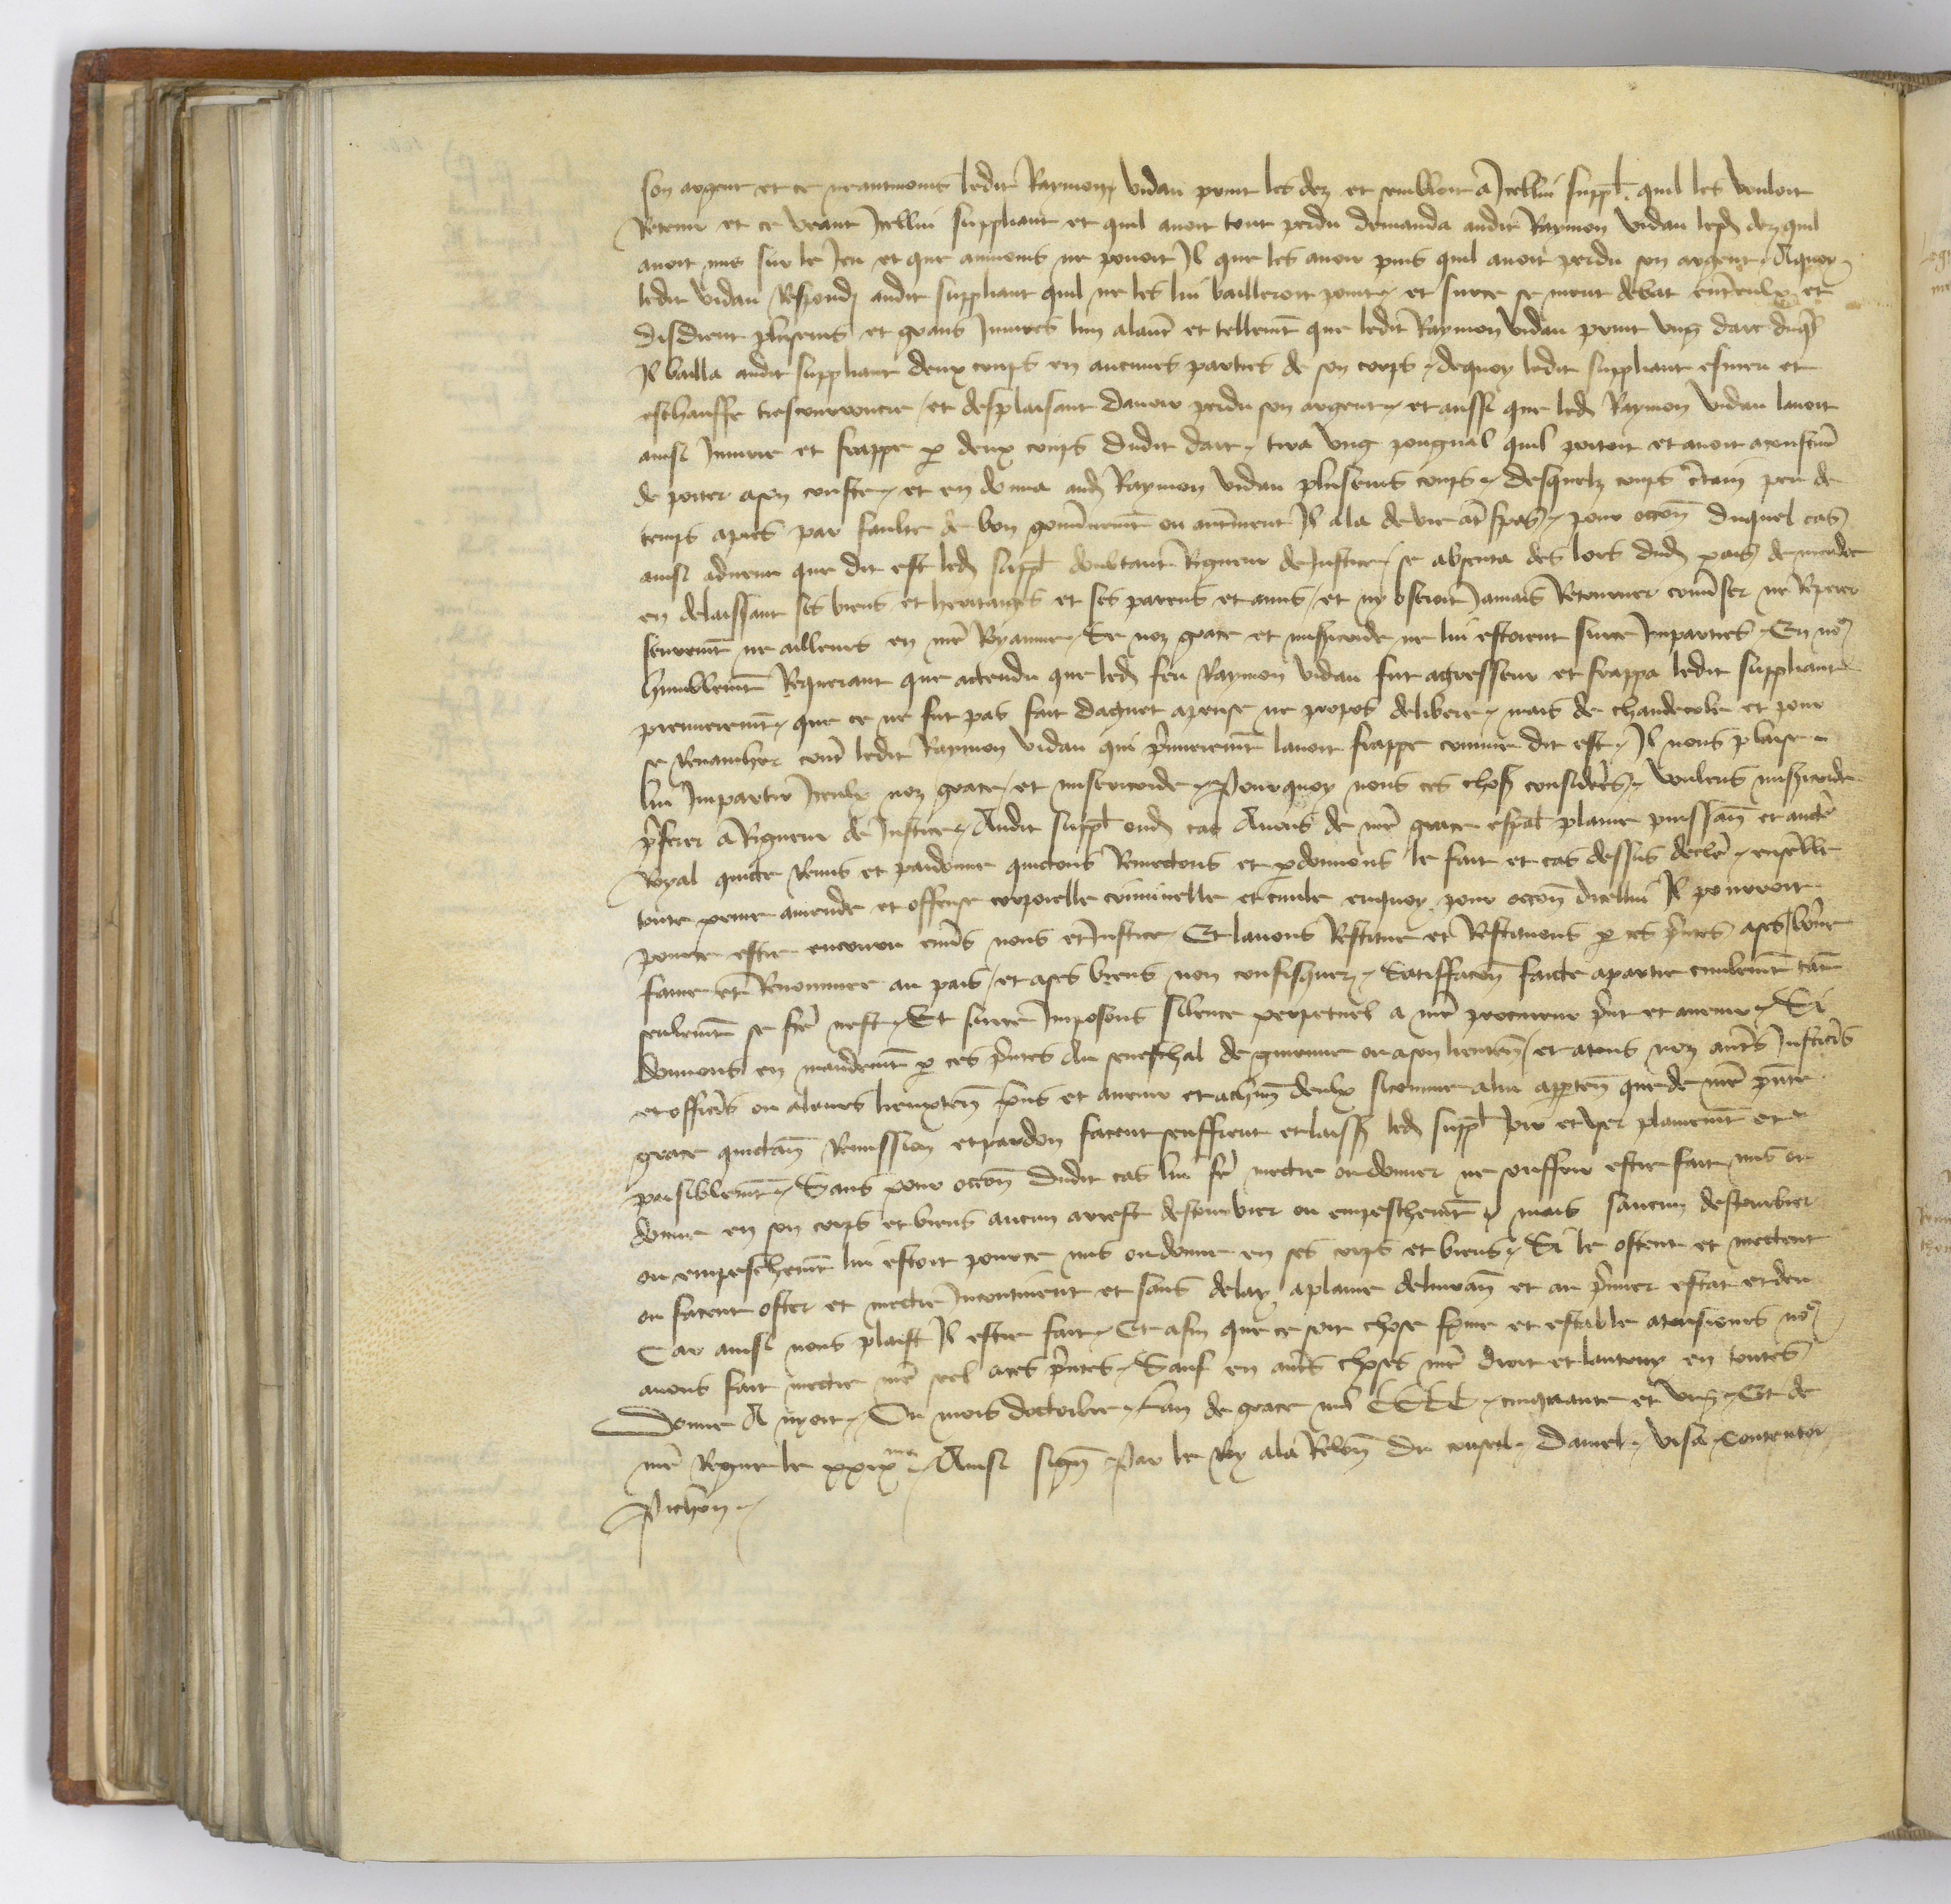 son argent et ce neantmoins ledit Raymon vidau print les dez et sembloit a Icellui suppl. quil les vouloit
Retenir et ce veant Icellui suppliant et quil avoit tout perdu demanda audit Raymon vidau lesd dez quil
avoit mis sur le Jeu et que aumoins ne povoit Il que les avoir puis quil avoit perdu son argent Aquoy
ledit vidau Respondj audit suppliant quil ne les lui bailleroit point et surce se meut debat entreulx et
disdrent pluseurs et grans Iniures lun alaut et tellemt que ledit Raymon vidau print ung dart duql
Il bailla audit suppliant deux coups en aucunes parties de son corps dequoy ledit suppliant esmeu et
eschauffe trescourroucie et desplaisant davoir perdu son argent et aussi que led Raymon vidau lavoit
ainsi Iniurie et frappe p deux coups dudit dart tira ung pongnal quil portoit et avoit acoustume
de porter ason couste et en donna aud Raymon vidau pluseurs coups desquelz coups ctain peu de
temps apres par faulte de bon gouvnemt ou autrment Il ala de vie a trespas pour occon duquel cas
ainsi advenu que dit est led suppl doubtant Rigueur de Justice se absenta des lors dud pais de medoc
en delaissant ses biens et heritaiges et ses parens et amis et ny oseroit Jamais Retourner convser ne Reperer
seuremt ne ailleurs en nre Royaume Se noz grace et misicorde ne lui estoient surce Imparties En no
humblemt Requerant que actendu que led feu Raymon vidau fut agresseur et frappa ledit suppliant
premieremt que ce ne fut pas fait daguet apense ne propos delibere mais de chaudecole et pour
se Revancher contr ledit Raymon vidau qui primieremt lavoit frappe comme dit est Il nous plaise
lui Impartir Iceulx noz grace et misericorde Pourquoy nous ces choses considerees voulens misicorde
preferer a Rigueur de Justice Audit suppl oud cas Avons de nre grace espal plaine puissan et aucte
Royal quicte Remis et pardonne quictons Remectons et pdonnons le fait et cas dessus decle ensemble
toute peine amende et offense corporelle criminelle et civile enquoy pour occon dicellui Il pourroit
pource estre encouru envs nous et Justice Et lavons Restitue et Restituons p ces pntes ases bonne
fame et Renommee au pais et ases biens non confisquez Satiffacon faicte apartie civilemt tant
seulemt se fce nest Et surce Imposons silence perpetuel a nre procureur pnt et avenir Si
donnons en mandemt p ces pntes Au seneschal de guienne ou ason lieuten et atous noz autrs Justices
et officiers ou aleurs lieuxten pns et avenir et achun deulx sicomme alui apptien que de nre pnte
grace quictan Remission et pardon facent seuffrent et laissent led suppl joir et user plainemt et
paisiblemt Sans pour occon dudit cas lui fe mectre ou donner ne souffrir estre fait mis ou
donne en son corps et biens aucun arrest destourbier ou empeschemt mais saucun destourbier
ou empeschemt lui estoit pource mis ou donne en ses corps et biens Si le ostent et mectent
ou facent oster et mectre Incontinent et sans delay aplaine delivran et au primier estat et deu
Car ainsi nous plaist Il estre fait Et afin que ce soit chose ferme et estable atousiours no
avons fait mectre nre seel aces pntes Sauf en autrs choses nre droit et lautruy en toutes
Donne A nyort Ou mois doctobre Lan de grace mil CCCC cinquante et ung Et de
nre Regne le xxixme Ainsi sign Par le Roy ala Relon du conseil Daniel visa Contentor
Pichon